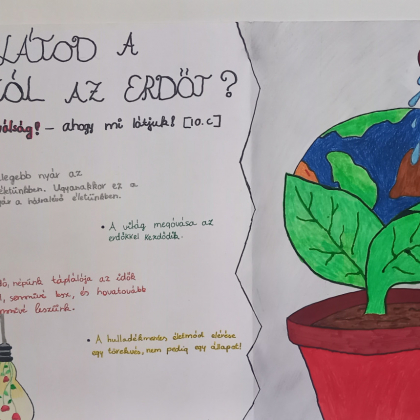 LÁTOD A
AZ ERDŐT?
- ahogy mi látjuk! [10.c]
legebb nyár az
életünkben. Ugyanakkor ez a
hátralévő életünkben.
• A világ megóvása az
erdőkkel kezdődik.
népünk táplálója az idők
semmivé lesz, és hovatovább
leszünk.
• A hulladékmentes életmód elérése
egy törekvés, nem pedig egy állapot!